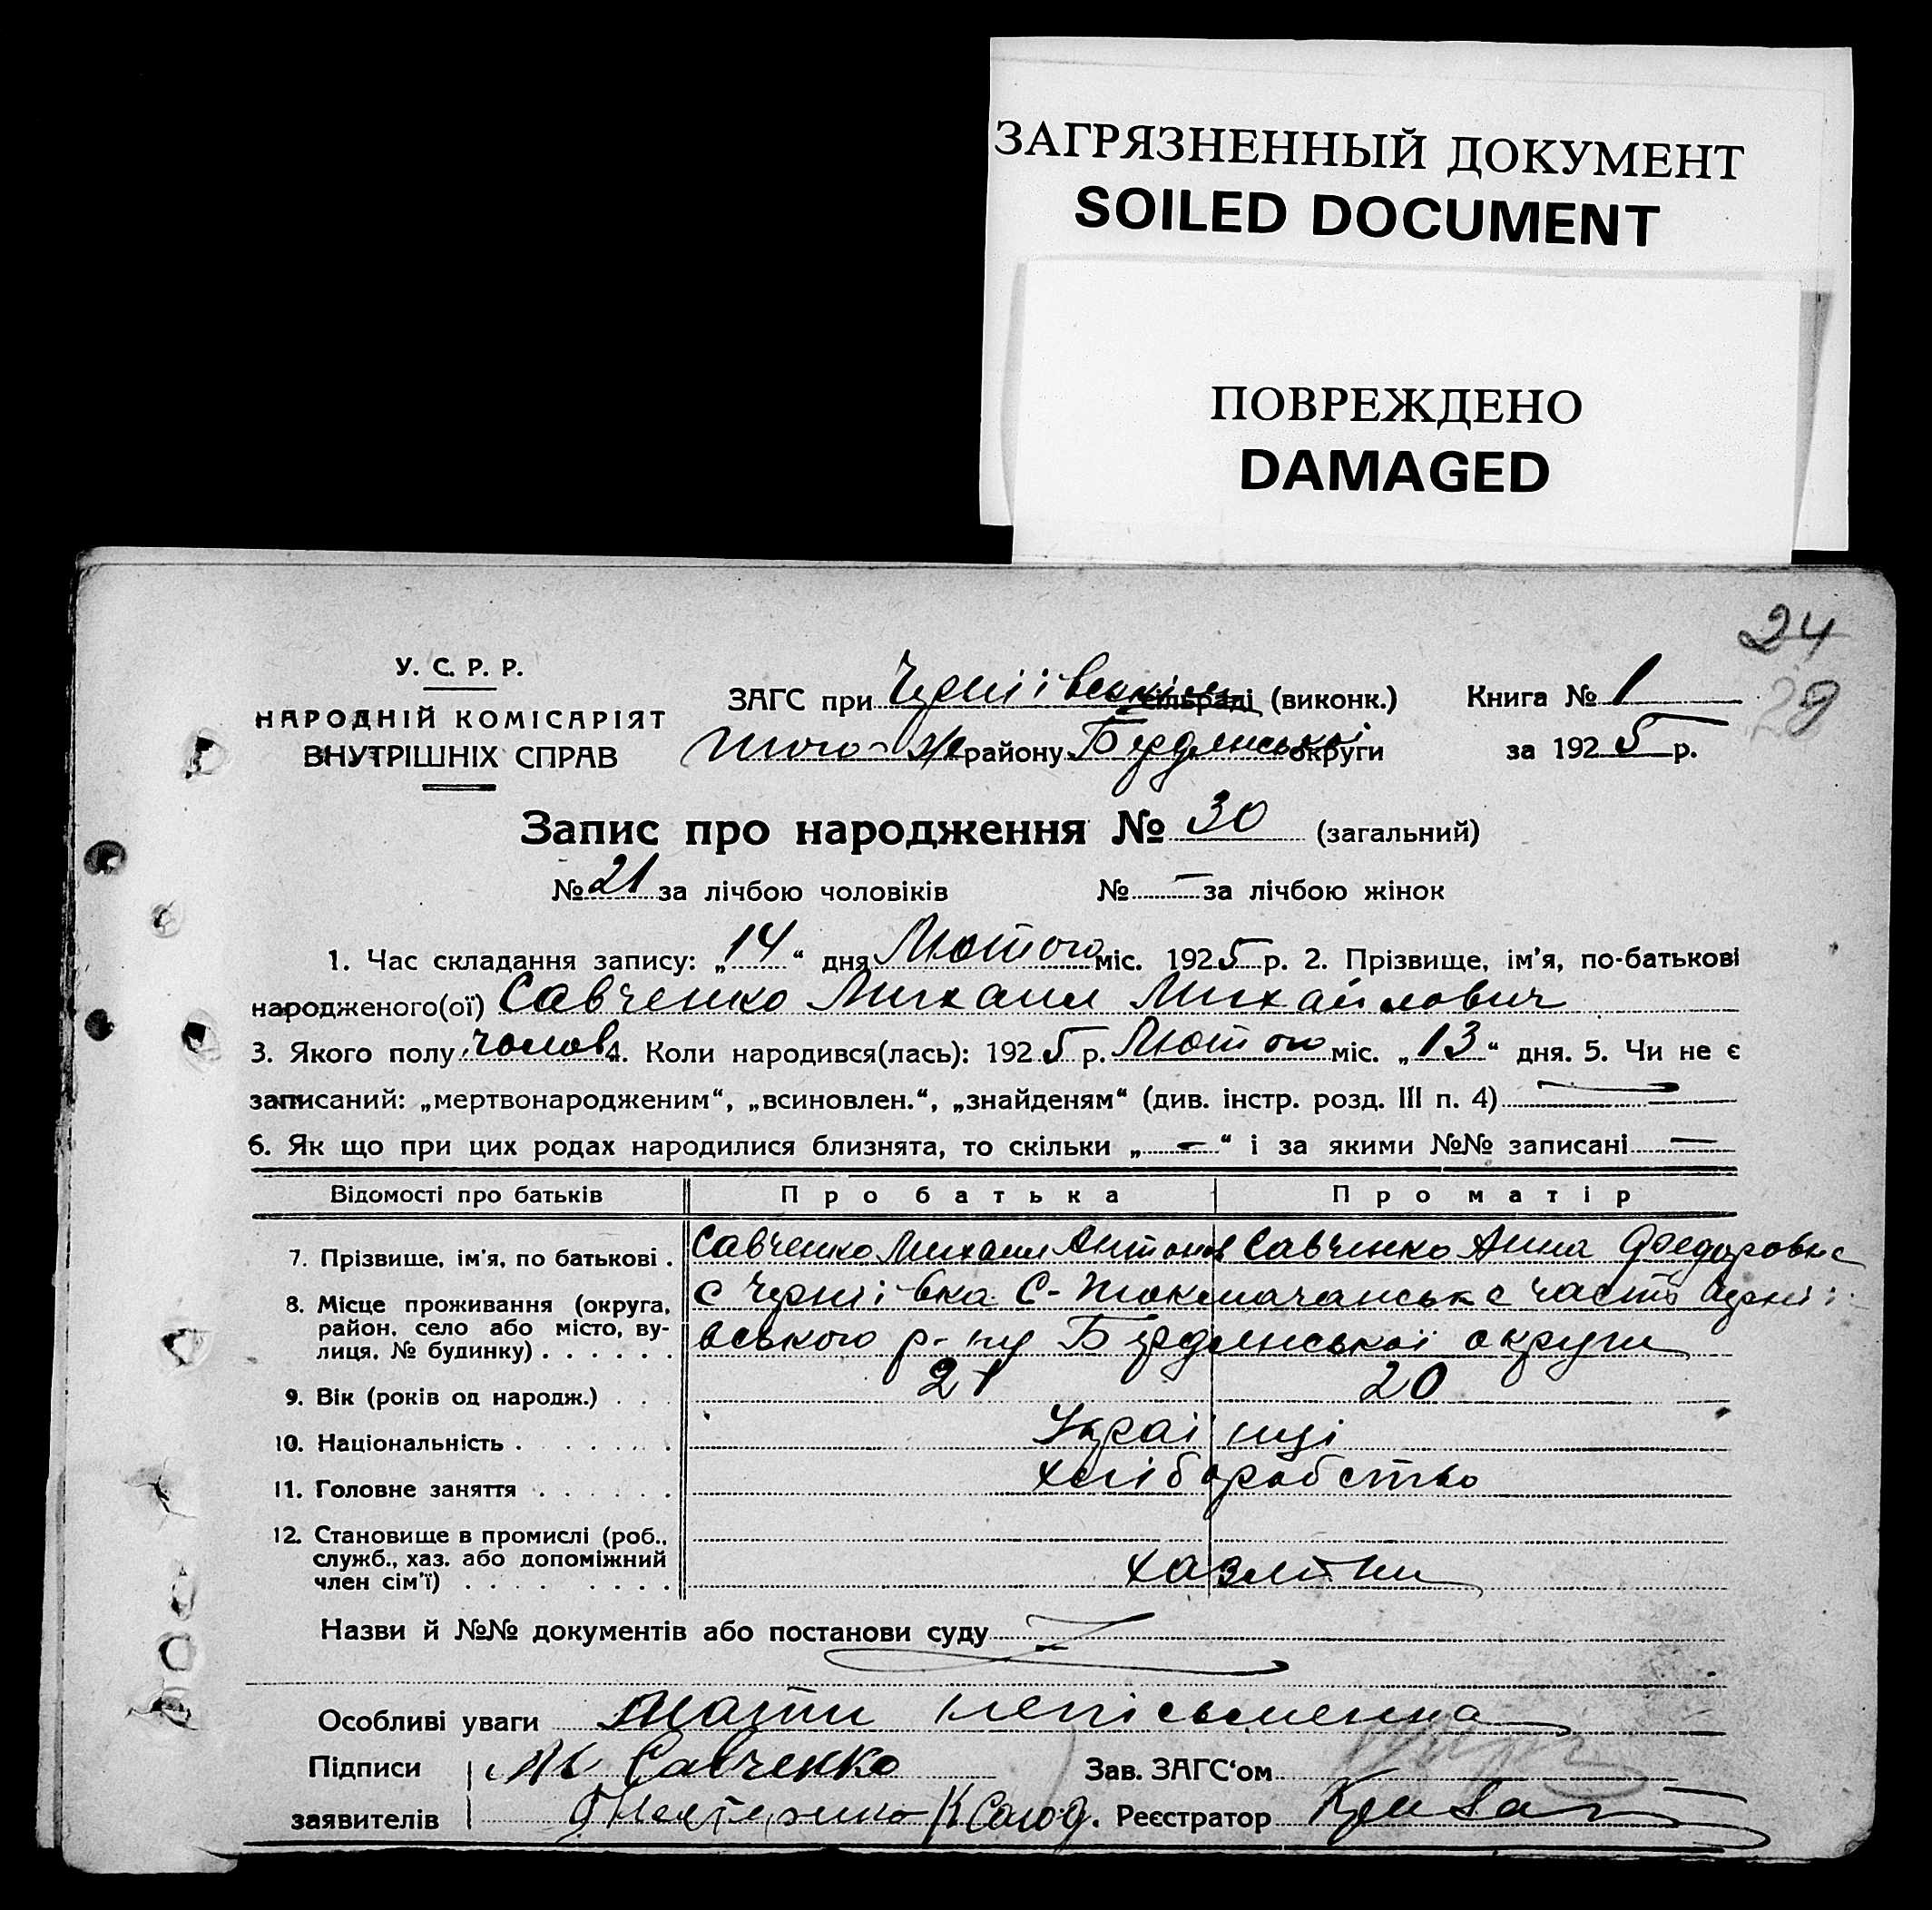 ЗАГРЯЗНЕННЫЙ ДОКУМЕНТ
SOILED DOCUMENT
ПОВРЕЖДЕНО
DAMAGED
24
29
У. С. Р. Р.
НАРОДНІЙ КОМІСАРІЯТ
ВНУТРІШНІХ СПРАВ
ЗАГС при Черніівськім сільраді (виконк.) Книга № 1
того-ж району Бердянської округи за 1925 р.
Запис про народження № 30 (загальний)
№ 21 за лічбою чоловіків № — за лічбою жінок
1. Час складання запису: „14“ дня Лютого міс. 1925 р. 2. Прізвище, ім'я, по-батькові
народженого(ої) Савченко Михаил Михайлович
3. Якого полу: чолов. 4. Коли народився(лась): 1925 р. Лютого міс. „13“ дня. 5. Чи не є
записаний: „мертвонародженим“, „всиновлен.“, „знайденям“ (див. інстр. розд. III п. 4) —
6. Як що при цих родах народилися близнята, то скільки „—“ і за якими №№ записані —
Відомості про батьків Про батька Про матір
7. Прізвище, ім'я, по батькові . Савченко Михаил Антонов Савченко Анна Федоровна
8. Місце проживання (округа, район, село або місто, вулиця, № будинку) . . . . . . с Черніівка С-Токмачанська часть Черніі-
вського р-ну Бердянської округи
9. Вік (років од народж.) . . . 21 20
10. Національність . . . . . . . Українці
11. Головне заняття . . . . . . хліборобство
12. Становище в промислі (роб., служб., хаз. або допоміжний член сім'ї) . . . . . . . . . хазяїни
Назви й №№ документів або постанови суду
Особливі уваги мати непісьменна
Підписи М Савченко Зав. ЗАГС'ом
заявителів Реєстратор